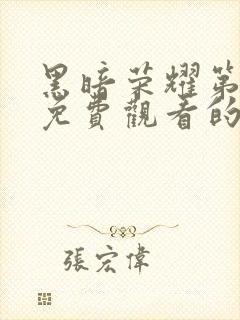 黑暗荣耀第
免費觀看的
張宏偉